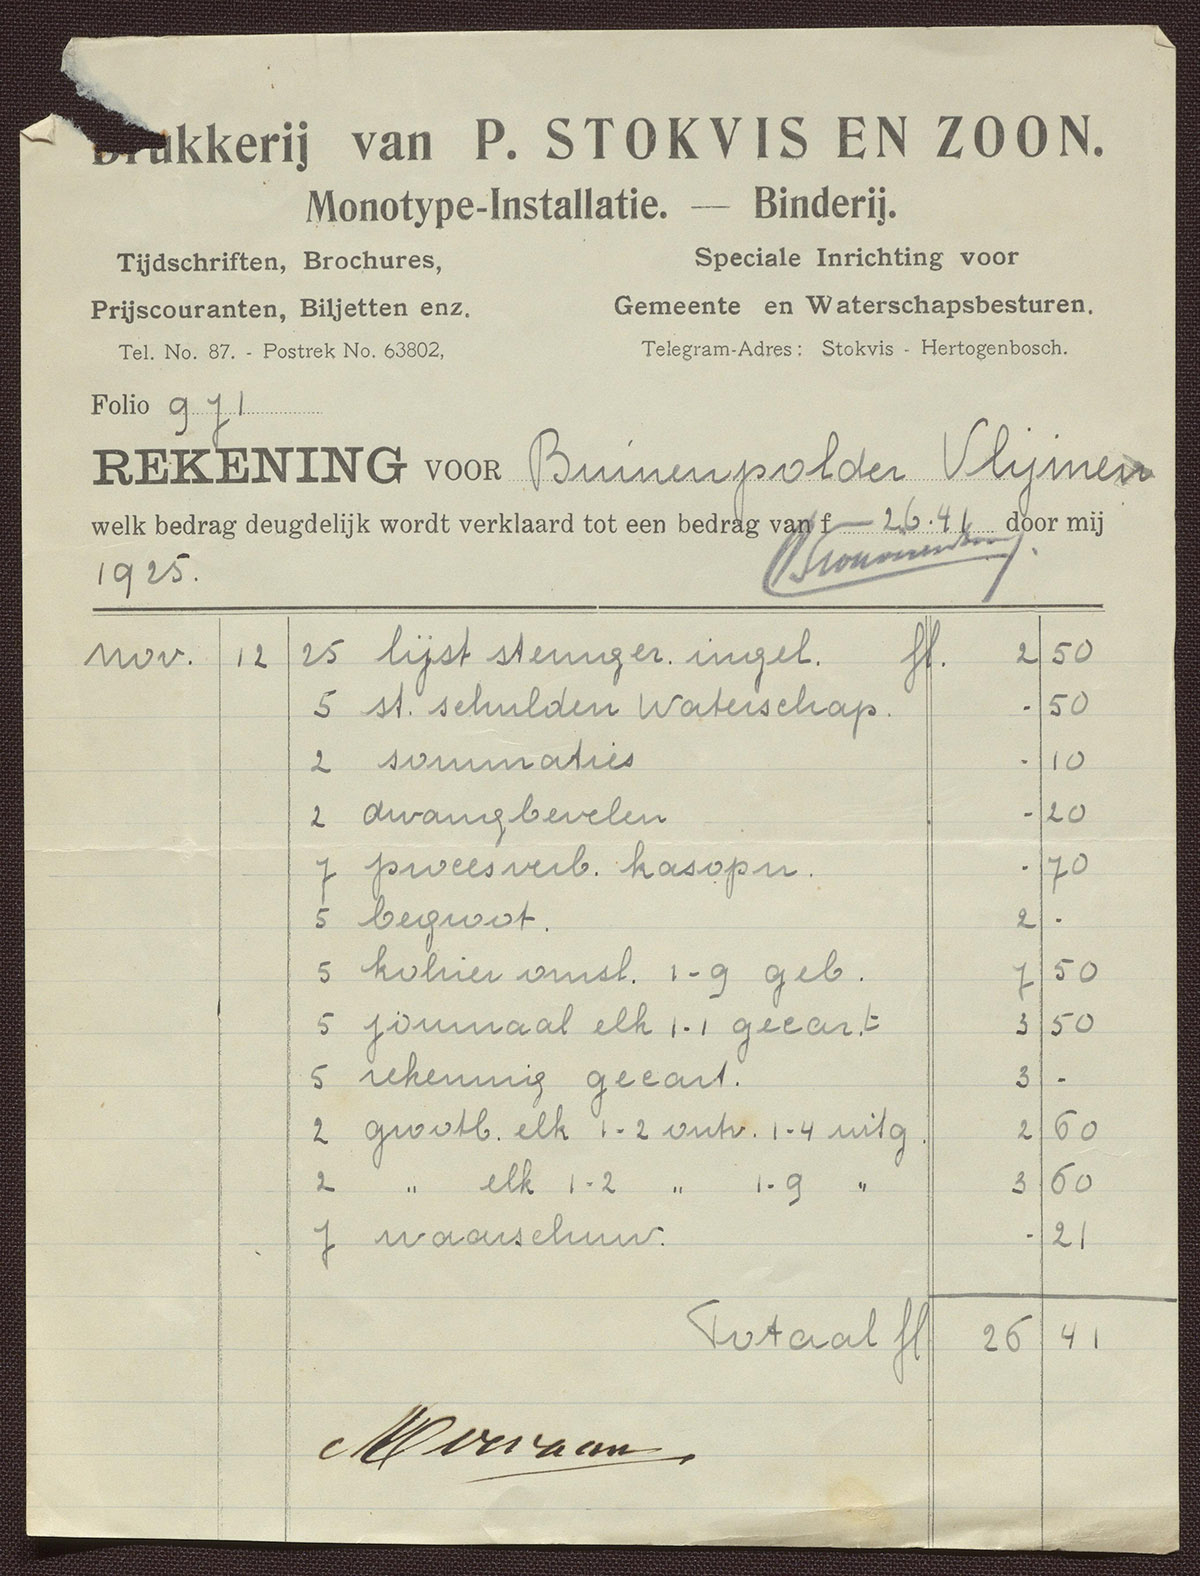 Drukkerij van P. STOKVIS EN ZOON.
Monotype-Installatie. — Binderij.
Tijdschriften, Brochures,
Prijscouranten, Biljetten enz.
Tel. No. 87. - Postrek No. 63802,
Speciale Inrichting voor
Gemeente en Waterschapsbesturen.
Telegram-Adres: Stokvis - Hertogenbosch.
Folio 971
REKENING VOOR Binnenpolder Vlijmen
welk bedrag deugdelijk wordt verklaard tot een bedrag van f — 26.41 door mij
1925.
nov. 12 25 lijst steunger. ingel. fl. 2 50
5 st. schulden Waterschap. - 50
2 sommaties - 10
2 dwangbevelen - 20
7 procesverb. kasopn. - 70
5 begroot. 2 -
5 kohier omsl. 1-9 geb. 7 50
5 journaal elk 1-1 gecart 3 50
5 rekening gecart. 3 -
2 grootb. elk 1-2 ontv. 1-4 uitg. 2 60
2 " elk 1-2 " 1-9 " 3 60
7 waarschuw. - 21
Totaal fl 26 41